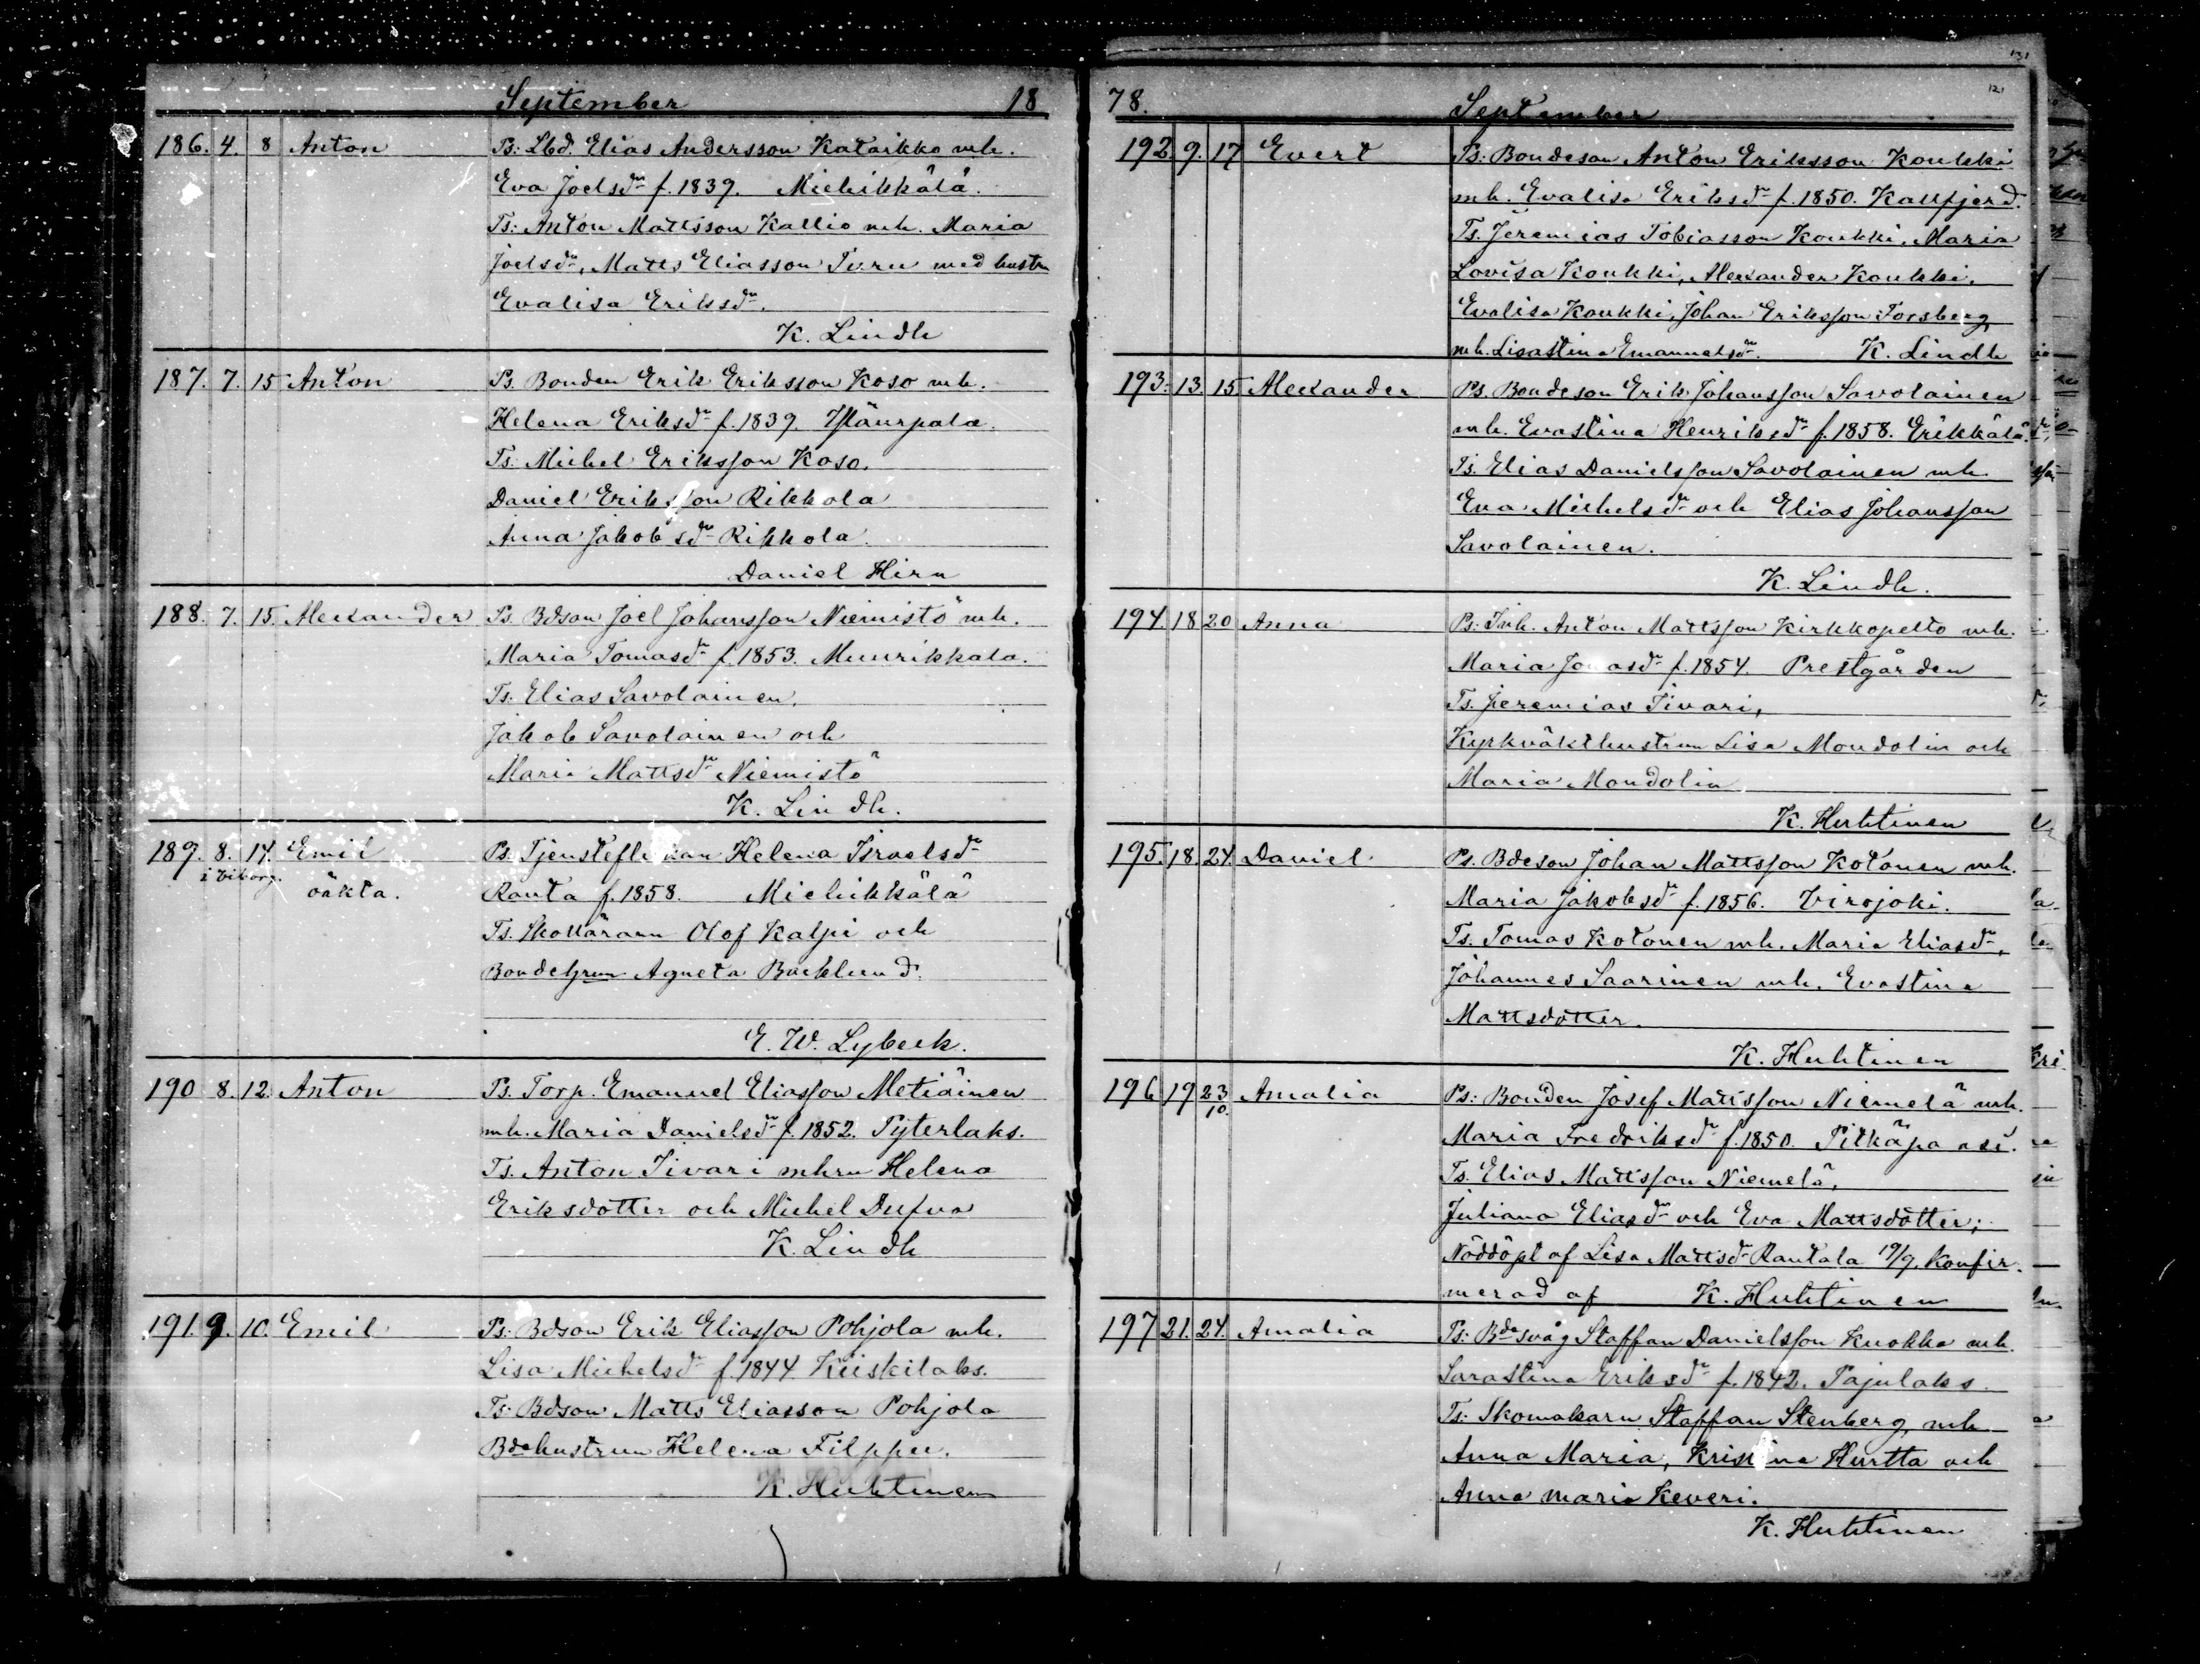 September 18
186. 4. 8 Anton Ps: Lbd. Elias Andersson Kataikko mh.
Eva Joelsdr f. 1839. Miehikkälä.
Ts: Anton Mattsson Kallio mh. Maria
Joelsdr, Matts Eliasson Turu med hustru
Evalisa Eriksdr.
K. Lindh
187. 7. 15 Anton Ps. Bonden Erik Eriksson Koso mh.
Helena Eriksdr f. 1839.
Ts: Michel Eriksson Koso.
Daniel Eriksson Rikkola
Anna Jakobsdr Rikkola.
Daniel Hirn
188. 7. 15. Alexander Ps. Bdson Joel Johansson Niemistö mh.
Maria Tomasdr f. 1853. Muurikkala.
Ts. Elias Savolainen,
Jakob Savolainen och
Maria Mattsdr Niemistö
K. Lindh.
189. 8. 14. Emil Ps. Tjensteflickan Helena Israelsdr
i Viborg. oäkta. Ranta f. 1858. Miehikkälä
Ts. Skollärarn Olof Kalpi och
Bondehrun Agneta Backlund.
E. W. Lybeck.
190 8. 12. Anton Ps. Torp. Emanuel Eliasson Metiäinen
mh. Maria Danielsdr f. 1852. Pyterlaks.
Ts. Anton Sivari mhru Helena
Eriksdotter och Michel Dufva
K. Lindh
191. 9. 10. Emil Ps: Bdson Erik Eliasson Pohjola mh.
Lisa Michelsdr f. 1844. Kiiskilaks.
Ts: Bdson Matts Eliasson Pohjola
Bdehustrun Helena Filppu.
K. Huhtinen
131
121
78. September
192 9. 17 Evert Ps: Bondeson Anton Eriksson Koukki
mh. Evalisa Eriksdr f. 1850. Kallfjerd.
Ts. Jeremias Tobiasson Koukki, Maria
Lovisa Koukki, Alexander Koukki,
Evalisa Koukki, Johan Eriksson Forsberg
mh. Lisastina Emanuelsdr. K. Lindh
193. 13. 15. Alexander Ps. Bondeson Erik Johansson Savolainen
mh. Evastina Henriksdr f. 1858. Erikkälä.
Ts. Elias Danielsson Savolainen mh.
Eva Michelsdr och Elias Johansson
Savolainen.
K. Lindh.
194. 18 20 Anna Ps: Inh. Anton Mattsson Kirkkopelto mh.
Maria Jonasdr f. 1854. Prestgården
Ts. Jeremias Sivari,
Kyrkväkthustrun Lisa Mondolin och
Maria Mondolin
K. Huhtinen
195. 18 24. Daniel Ps. Bdeson Johan Mattsson Kotonen mh.
Maria Jakobsdr f. 1856. Virojoki.
Ts. Tomas Kotonen mh. Maria Eliasdr,
Johannes Saarinen mh. Evastina
Mattsdotter.
K. Huhtinen
196 19 23/10. Amalia Ps: Bonden Josef Mattsson Niemelä mh.
Maria Fredriksdr f. 1850. Pitkäpaasi.
Ts. Elias Mattsson Niemelä,
Juliana Eliasdr och Eva Mattsdotter;
Nöddöpt af Lisa Mattsdr Rantala 19/9. Konfir-
merad af K. Huhtinen
197 21. 24. Amalia Ps: Bdesvåg Staffan Danielsson Kuokka mh.
Sarastina Eriksdr f. 1842. Pajulaks.
Ts: Skomakarn Staffan Stenberg, mh
Anna Maria, Kristina Hurtta och
Anna Maria Keveri.
K. Huhtinen